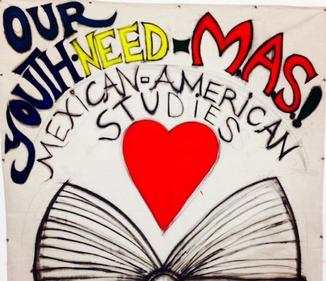 OUR
YOUTH·NEED·MAS!
MEXICAN-AMERICAN
STUDIES